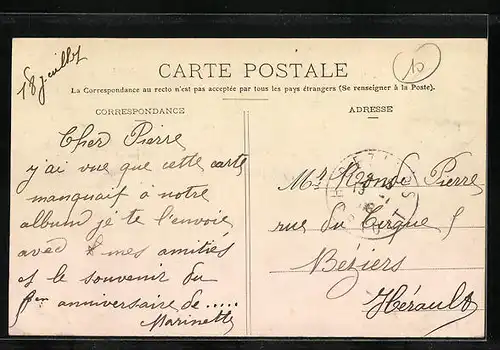 18 juillet
10
CARTE POSTALE
La Correspondance au recto n'est pas acceptée par tous les pays étrangers (Se renseigner à la Poste).
CORRESPONDANCE
Cher Pierre
j'ai vue que cette carte
manquait à notre
album je te l'envoie
avec mes amitiés
et le souvenir du
anniversaire de .....
Marinette
ADRESSE
Mr Pierre
rue du Cirque 9
Béziers
Hérault